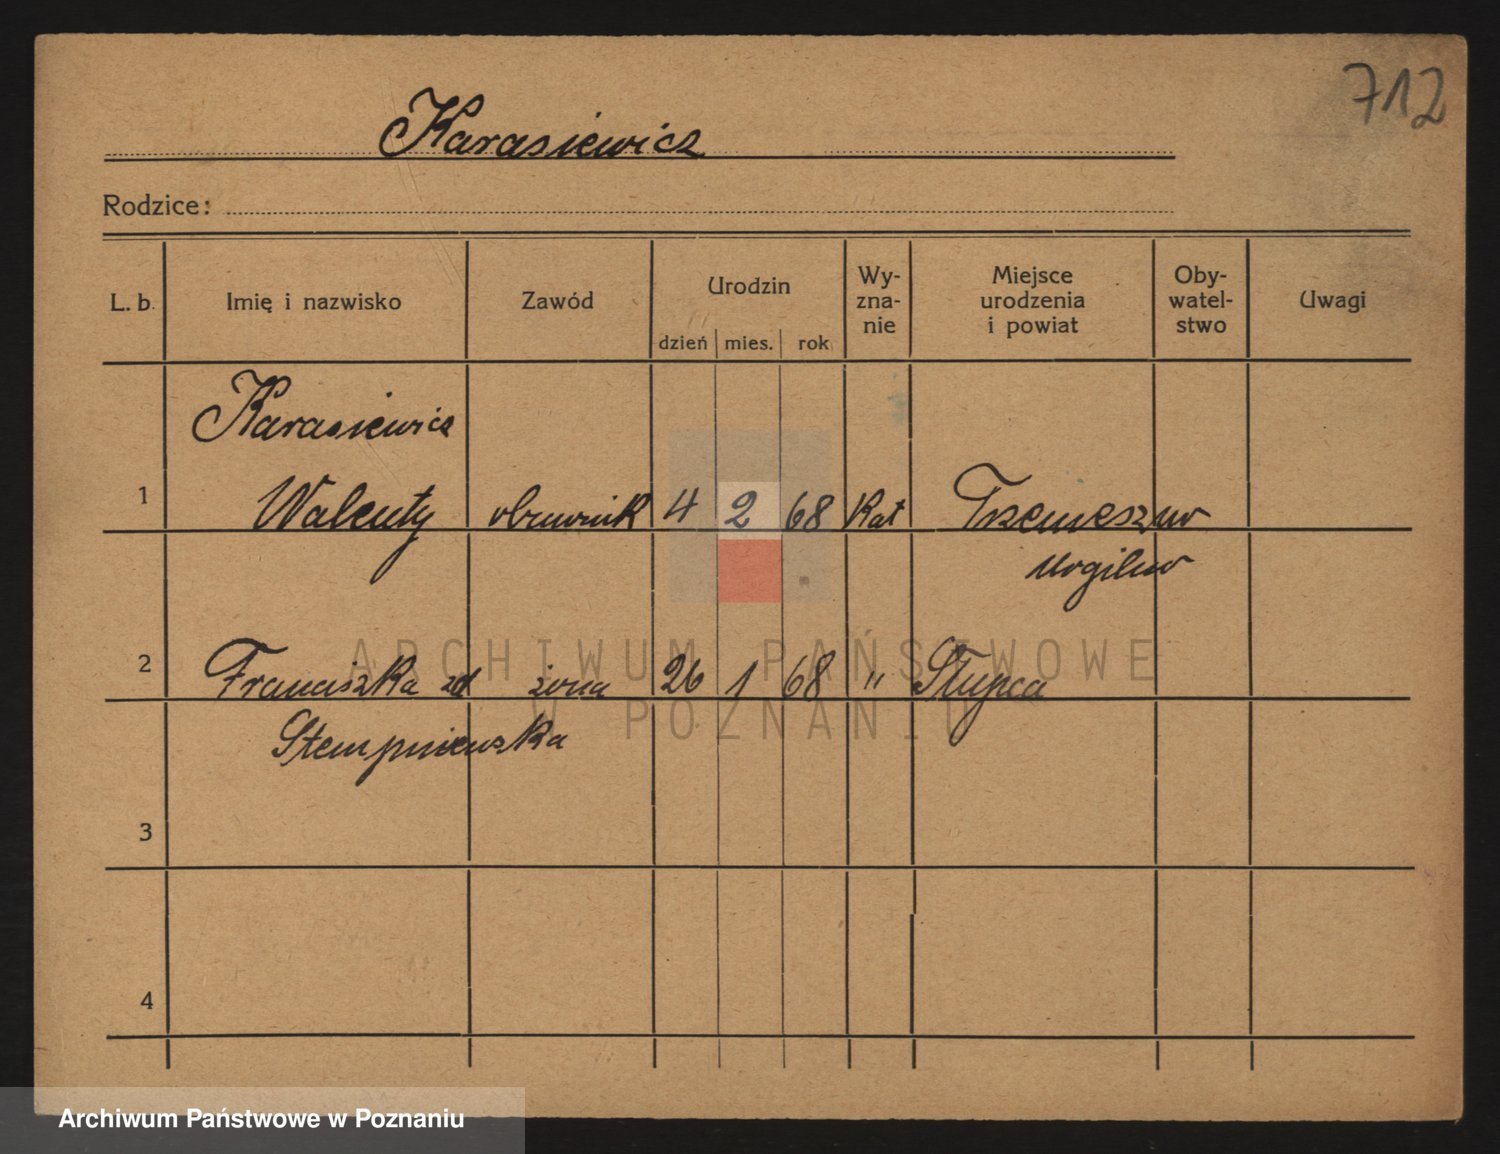 712
Karasiewicz
Rodzice:
L. b. Imię i nazwisko Zawód Urodzin dzień mies. rok Wy-zna-nie Miejsce urodzenia i powiat Oby-watel-stwo Uwagi
Karasiewicz
1 Walenty obuwnik 4 2 68 Kat Trzemeszno
Mogilno
2 Franciszka zd żona 26 1 68 " Słupca
Stempniewska
3
4
ARCHIWUM PAŃSTWOWE
W POZNANIU
Archiwum Państwowe w Poznaniu